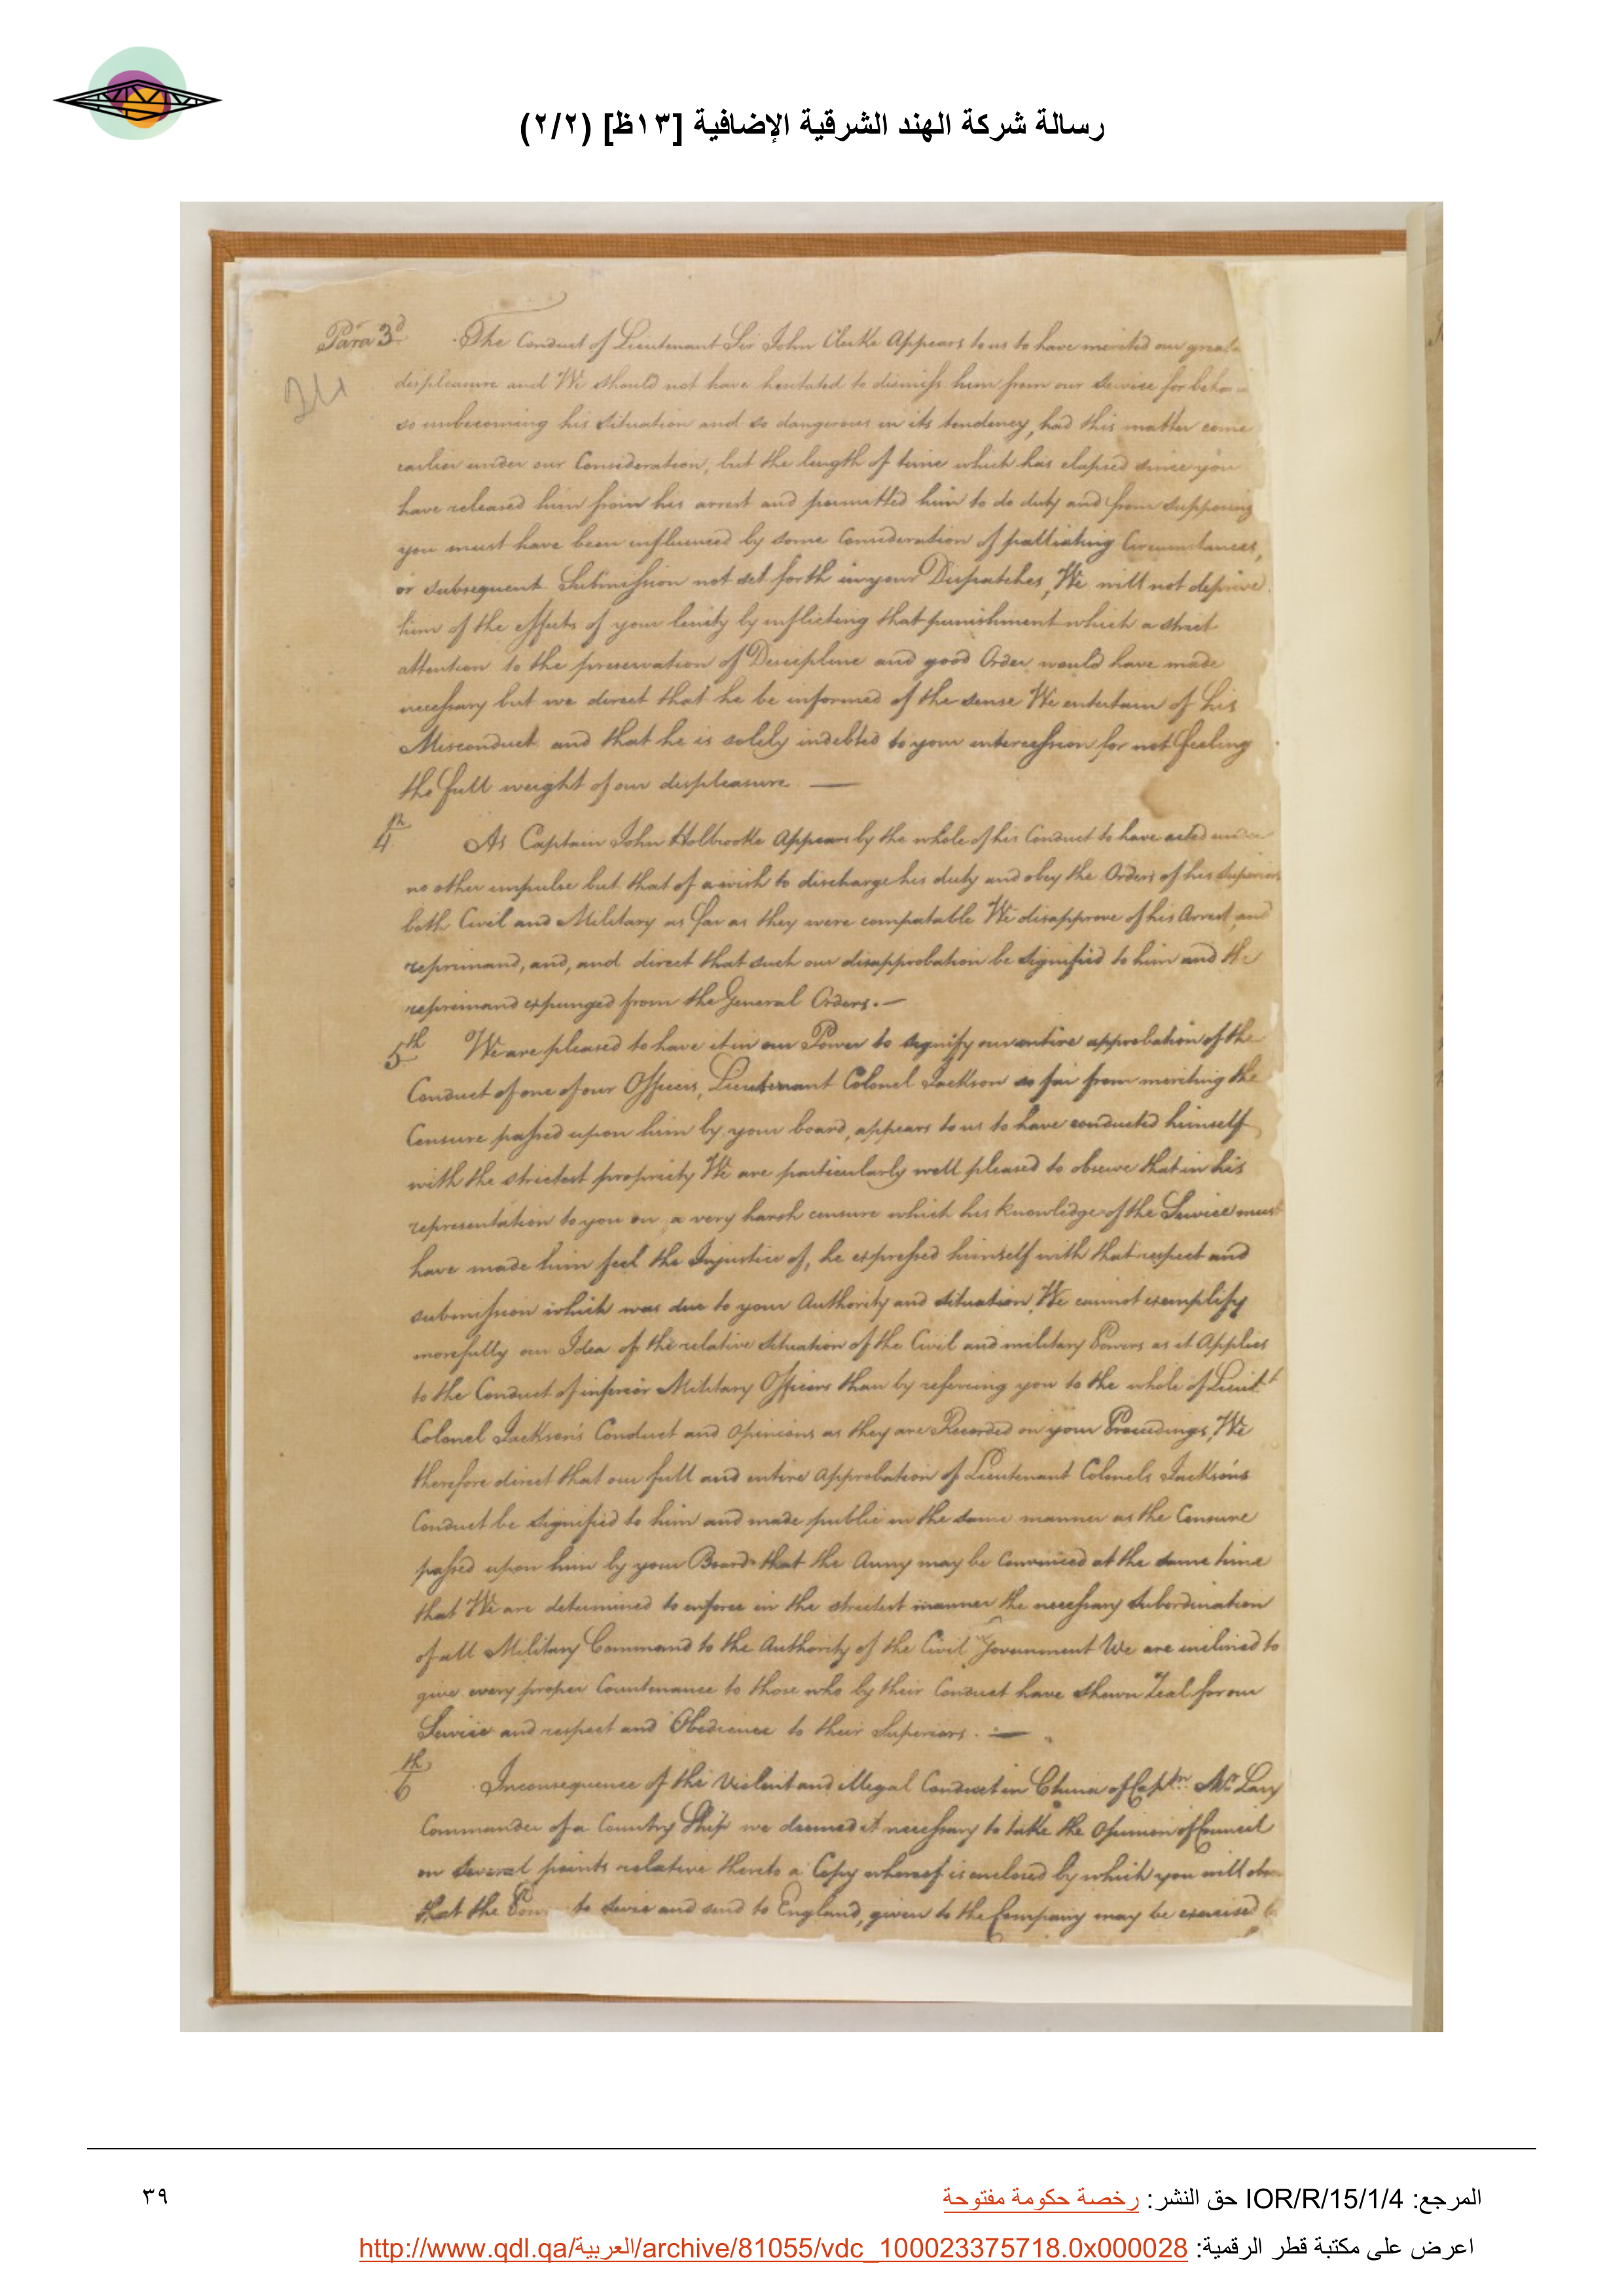 رسالة شركة الهند الشرقية الإضافية [١٣ظ] (٢/٢)
Para 3d. The Conduct of Lieutenant Sir John Clerke Appears to us to have merited our great
displeasure and We should not have hesitated to dismiss him from our Service for
so unbecoming his situation and so dangerous in its tendency, had this matter come
earlier under our Consideration, but the length of time which has elapsed since you
have released him from his arrest and permitted him to do duty and from supposing
you must have been influenced by some Consideration of palliating Circumstances,
or subsequent Submission not set forth in your Dispatches, We will not deprive
him of the effects of your lenity by inflicting that punishment which a strict
attention to the preservation of Discipline and good Order would have made
necessary but we direct that he be informed of the sense We entertain of his
Misconduct and that he is solely indebted to your intercession for not feeling
the full weight of our displeasure —
4th As Captain John Holbrooke Appears by the whole of his Conduct to have acted under
no other impulse but that of a wish to discharge his duty and obey the Orders of his Superiors
both Civil and Military as far as they were compatable We disapprove of his Arrest and
reprimand, and, and direct that such our disapprobation be signified to him and the
reprimand expunged from the General Orders. —
5th We are pleased to have it in our Power to signify our entire approbation of the
Conduct of one of our Officers, Lieutenant Colonel Jackson so far from meriting the
Censure passed upon him by your board, appears to us to have conducted himself
with the strictest propriety We are particularly well pleased to observe that in his
representation to you on a very harsh censure which his knowledge of the Service must
have made him feel the Injustice of, he expressed himself with that respect and
submission which was due to your Authority and situation, We cannot exemplify
more fully our Idea of the relative situation of the Civil and military Powers as it Applies
to the Conduct of inferior Military Officers than by referring you to the whole of Lieutt
Colonel Jackson's Conduct and Opinions as they are Recorded on your Proceedings, We
therefore direct that our full and entire Approbation of Lieutenant Colonels Jackson's
Conduct be signified to him and made public in the same manner as the Censure
passed upon him by your Board that the Army may be Convinced at the same time
that We are determined to enforce in the strictest manner the necessary Subordination
of all Military Command to the Authority of the Civil Government We are inclined to
give every proper Countenance to those who by their Conduct have shewn Zeal for our
Service and respect and Obedience to their Superiors. —
6th Inconsequence of the Violent and illegal Conduct in China of Captn. Mc Lary
Commander of a Country Ship we deemed it necessary to take the Opinion of Council
on several points relative thereto a Copy whereof is enclosed by which you will
that the to seize and send to England, given to the Company may be exercised
المرجع: IOR/R/15/1/4 حق النشر: رخصة حكومة مفتوحة
٣٩
اعرض على مكتبة قطر الرقمية: http://www.qdl.qa/العربية/archive/81055/vdc_100023375718.0x000028